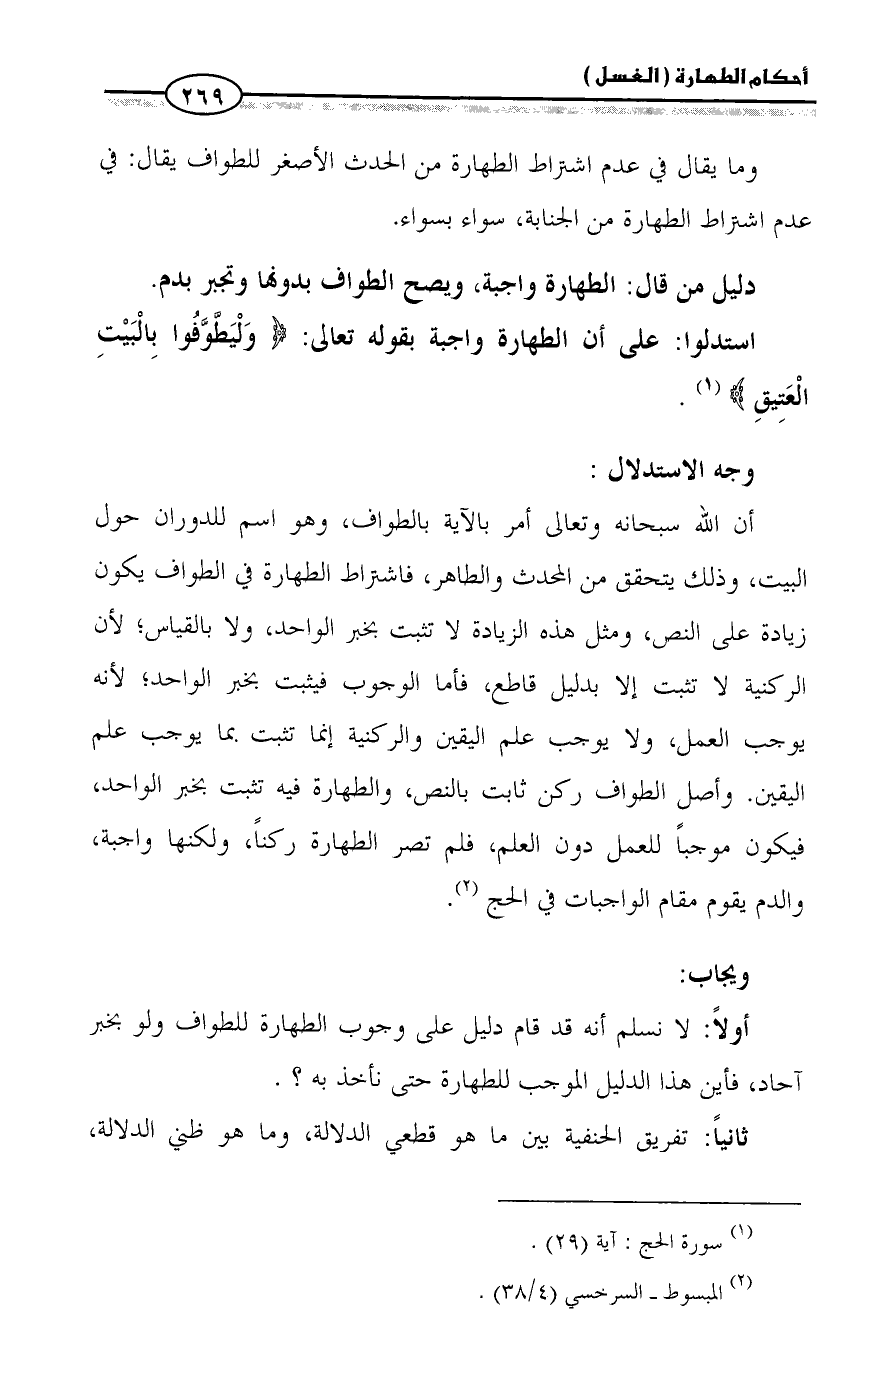 أحكام الطهارة (الغسل)
٢٦٩
وما يقال في عدم اشتراط الطهارة من الحدث الأصغر للطواف يقال: في
عدم اشتراط الطهارة من الجنابة، سواء بسواء.
دليل من قال: الطهارة واجبة، ويصح الطواف بدونها وتجبر بدم.
استدلوا: على أن الطهارة واجبة بقوله تعالى: ﴿ وَلْيَطَّوَّفُوا بِالْبَيْتِ
الْعَتِيقِ ﴾ (١) .
وجه الاستدلال :
أن الله سبحانه وتعالى أمر بالآية بالطواف، وهو اسم للدوران حول
البيت، وذلك يتحقق من المحدث والطاهر، فاشتراط الطهارة في الطواف يكون
زيادة على النص، ومثل هذه الزيادة لا تثبت بخبر الواحد، ولا بالقياس؛ لأن
الركنية لا تثبت إلا بدليل قاطع، فأما الوجوب فيثبت بخبر الواحد؛ لأنه
يوجب العمل، ولا يوجب علم اليقين والركنية إنما تثبت بما يوجب علم
اليقين. وأصل الطواف ركن ثابت بالنص، والطهارة فيه تثبت بخبر الواحد،
فيكون موجباً للعمل دون العلم، فلم تصر الطهارة ركناً، ولكنها واجبة،
والدم يقوم مقام الواجبات في الحج (٢).
ويجاب:
أولاً: لا نسلم أنه قد قام دليل على وجوب الطهارة للطواف ولو بخبر
آحاد، فأين هذا الدليل الموجب للطهارة حتى نأخذ به ؟ .
ثانياً: تفريق الحنفية بين ما هو قطعي الدلالة، وما هو ظني الدلالة،
(١) سورة الحج : آية (٢٩) .
(٢) المبسوط ـ السرخسي (٣٨/٤) .